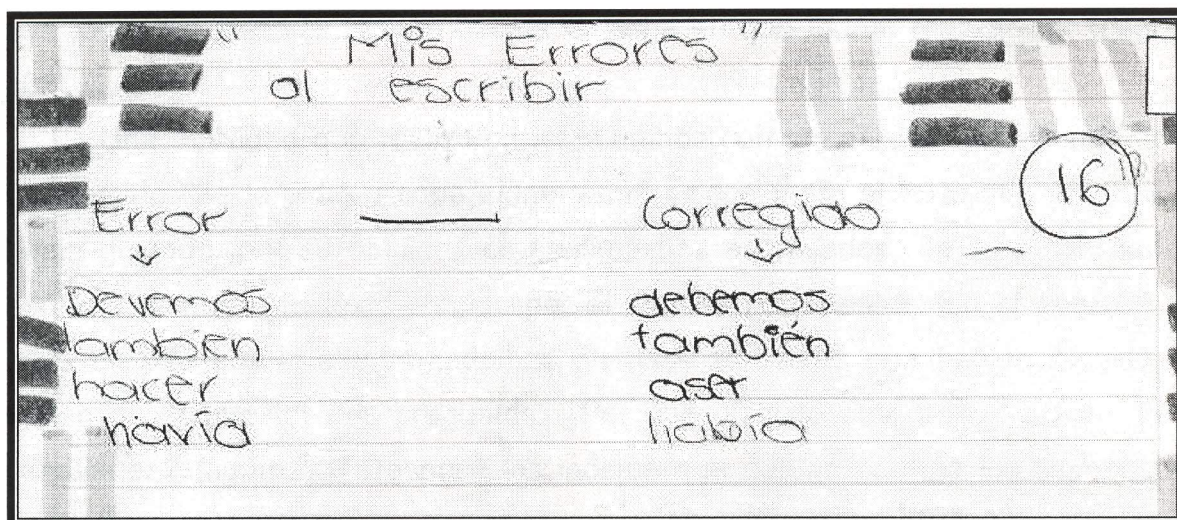 " Mis Errores "
al escribir
16
Error — Corregido
Devemos debemos
tambien también
hacer aser
havía había